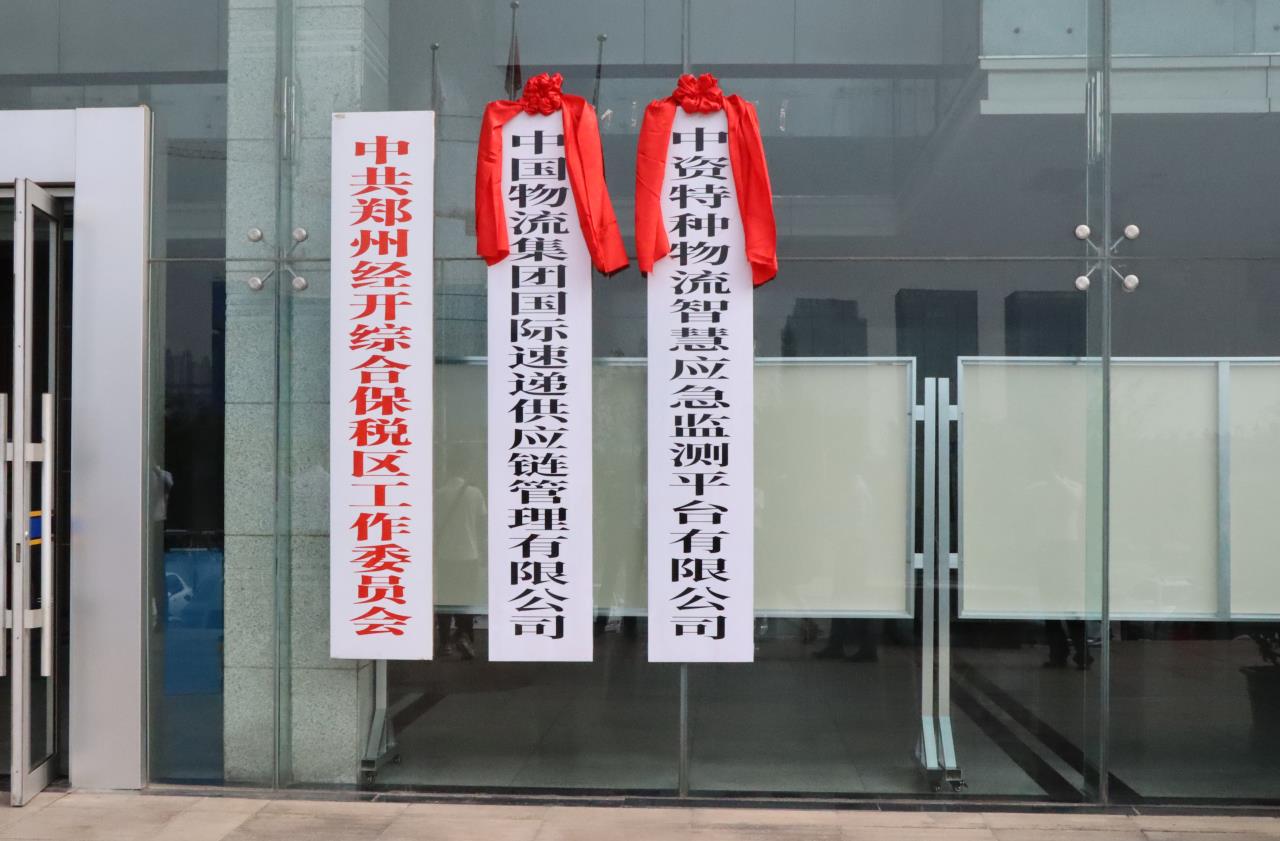 中共郑州经开综合保税区工作委员会
中国物流集团国际速递供应链管理有限公司
中资特种物流智慧应急监测平台有限公司